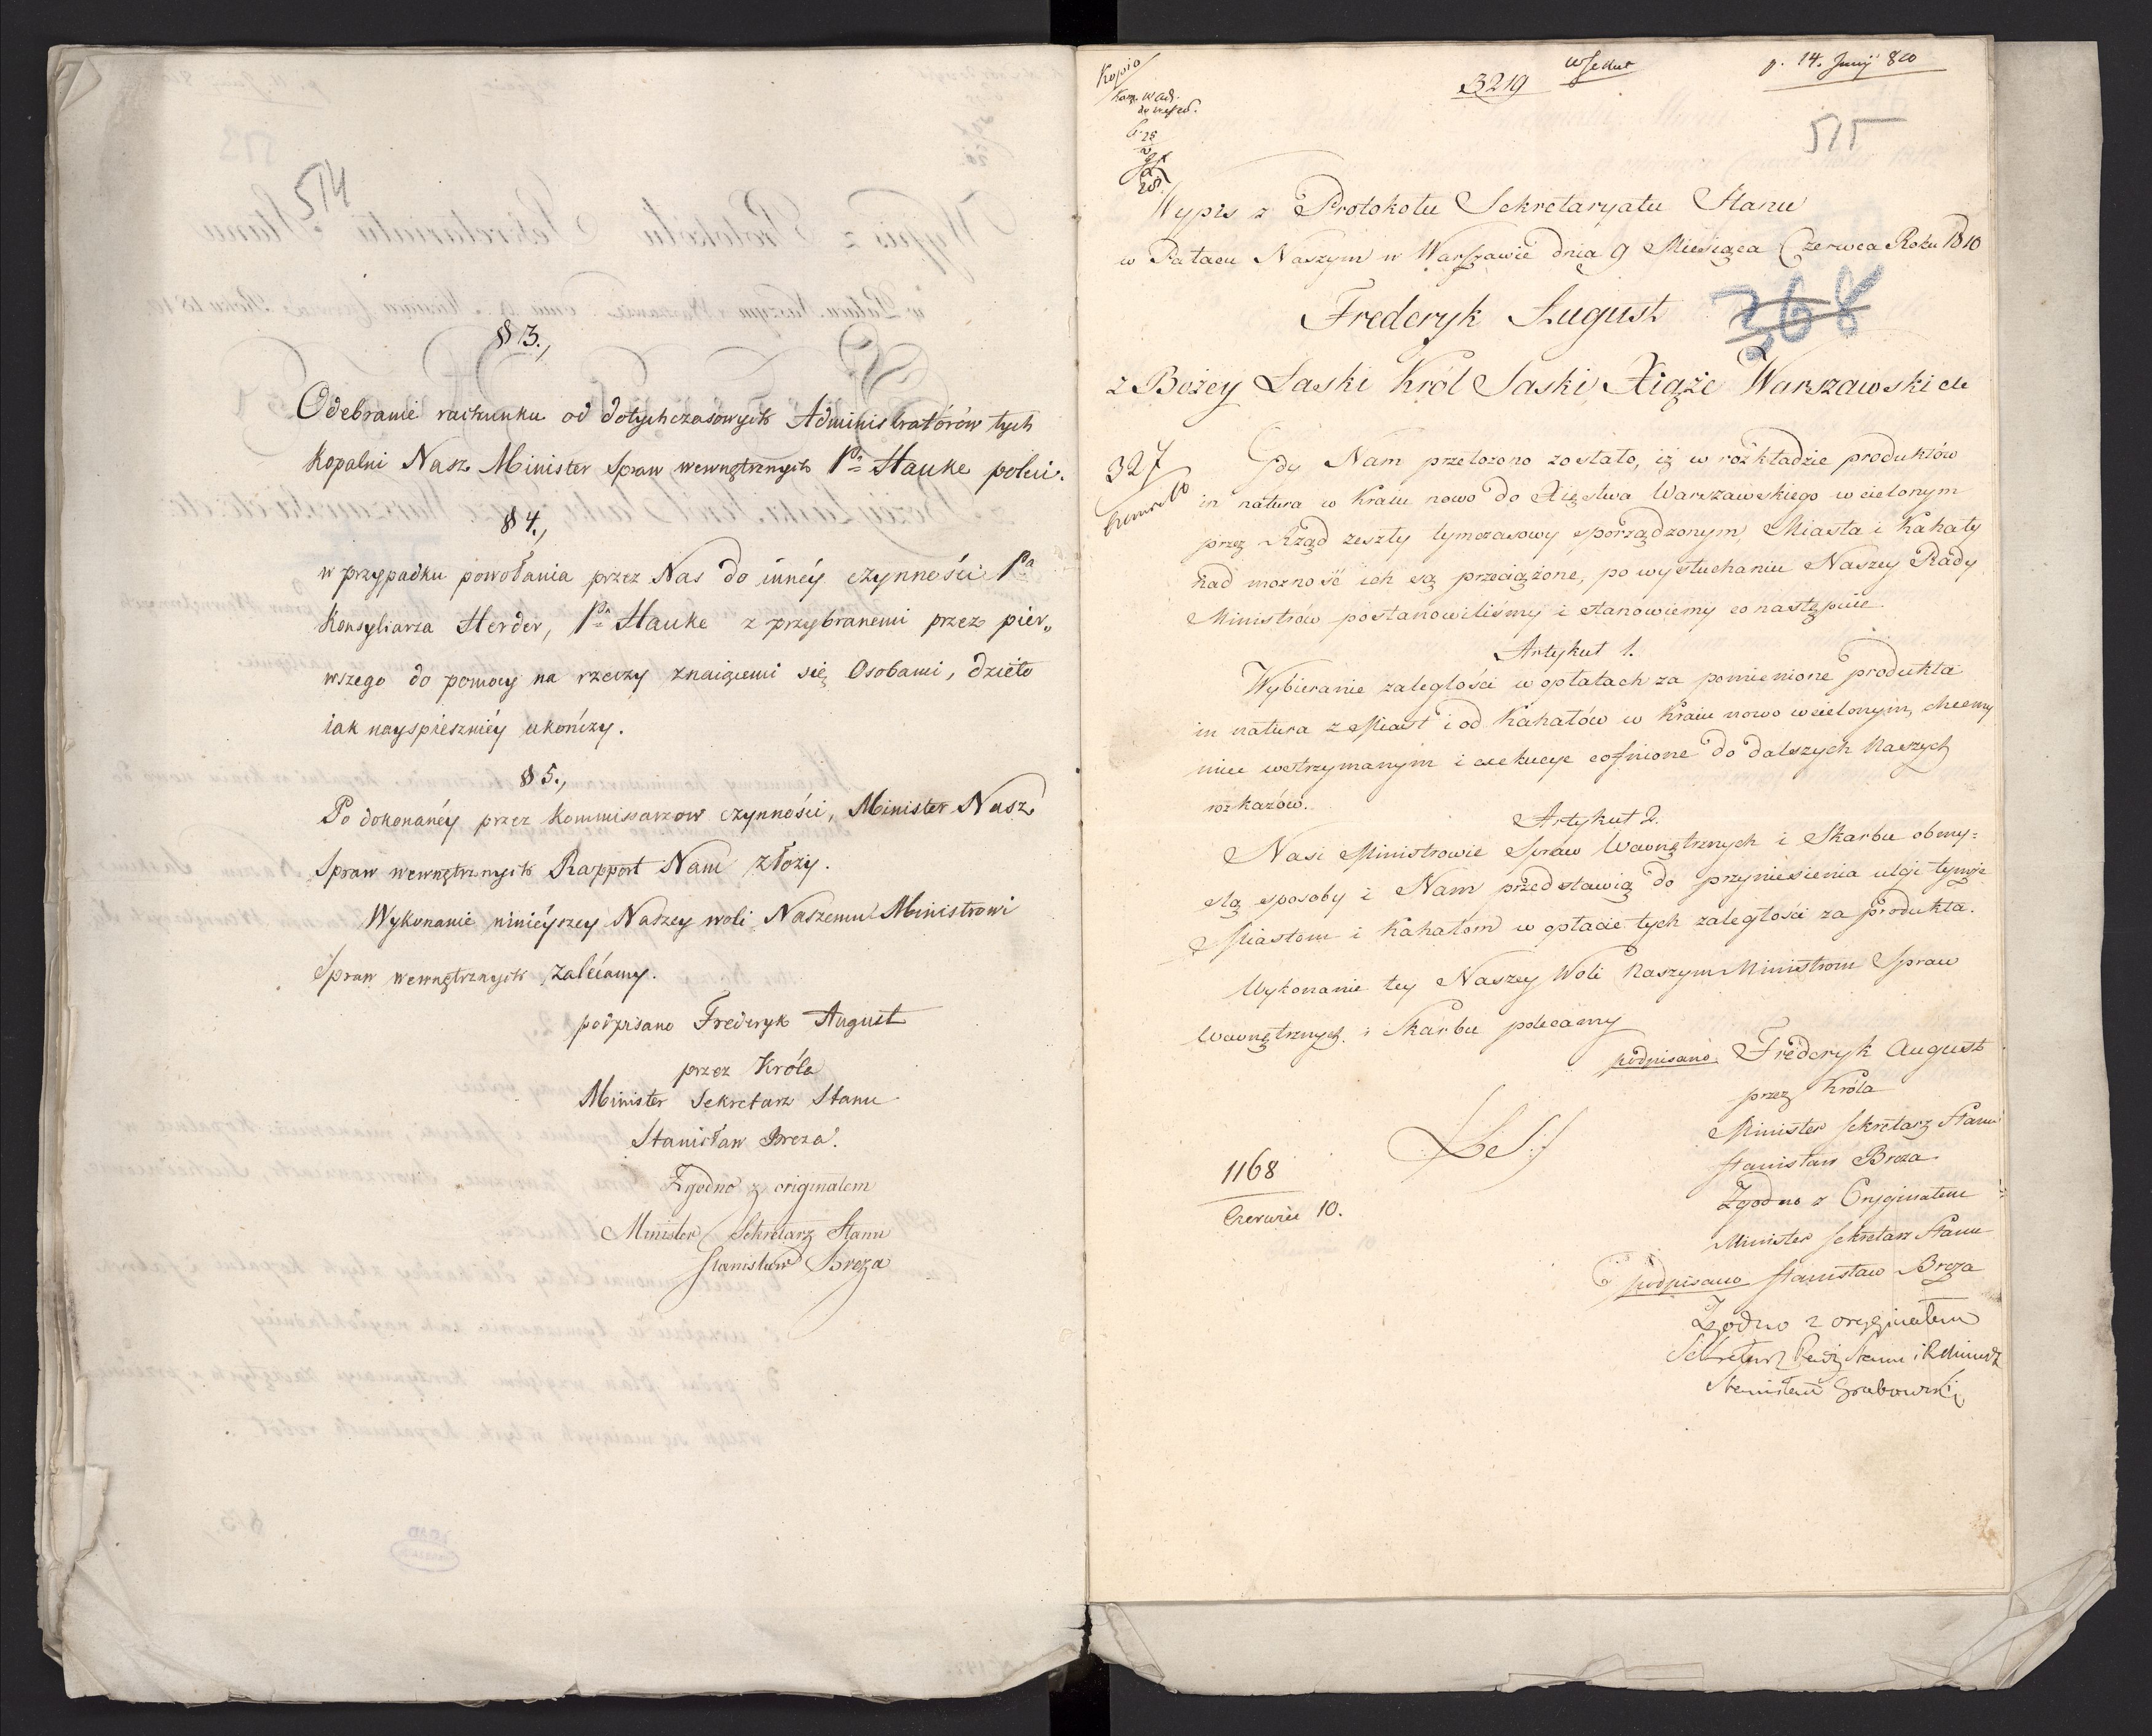 514
§ 3.,
Odebranie rachunku od dotychczasowych Administratórów tych
kopalni Nasz Minister Spraw wewnętrznych Pu Hauke poleci.
§ 4.,
w przypadku powołania przez Nas do innéy czynności Pa
Konsyliarza Herder, Pn Hauke z przybranemi przez pier„
wszego do pomocy na rzeczy znaiącemi się Osobami, dzieło
iak nayspieszniéy ukończy.
§ 5.,
Po dokonanéy przez Kommissarzow czynności, Minister Nasz
Spraw wewnętrznych Rapport Nam złoży.
Wykonanie ninieyszey Naszey woli Naszemu Ministrowi
Spraw wewnętrznych zalécamy.
podpisano Frederyk August
przez Króla
Minister Sekretarz Stanu
Stanisław Breza.
Zgodno z originalem
Minister Sekretarz Stanu
Stanisław Breza
Kopio
3219
p. 14. Junij 810
515
Wypis z Protokołu Sekretaryatu Stanu
w Pałacu Naszym w Warszawie dnia 9 Miesiąca Czerwca Roku 1810
Frederyk August
368
z Bożey Łaski Król Saski, Xiąże Warszawski etc
327
Gdy Nam przełożono zostało, iż w rozkładzie produktów
in natura w Kraiu nowo do Xięstwa Warszawskiego wcielonym
przez Rząd zeszły tymczasowy sporządzonym, Miasta i Kahały
nad możność ich są przeciążone, po wysłuchaniu Naszey Rady
Ministrów postanowiliśmy i stanowiemy co następuie.
Artykuł 1.
Wybieranie zaległości w opłatach za pomienione produkta
in natura z Miast i od Kahałów w Kraiu nowo wcielonym, chcemy
mieć wstrzymanym i exekucye cofnione do dalszych Naszych
rozkazów.
Artykuł 2.
Nasi Ministrowie Spraw Wewnętrznych i Skarbu obmy=
slą sposoby i Nam przedstawią do przyniesienia ulgi tymże
Miastom i Kahałom w opłacie tych zaległości za produkta.
Wykonanie tey Naszey Woli Naszym Ministrom Spraw
Wewnętrznych i Skarbu polecamy
podpisano Frederyk August
przez Króla
Minister Sekretarz Stanu
Stanisław Breza
(L.S.)
1168
Czerwiec 10.
Zgodno z Oryginałem
Minister Sekretarz Stanu
podpisano Stanisław Breza
Zgodno z oryginałem
Sekretarz Rady Stanu i R Ministr
Stanisław Grabowski